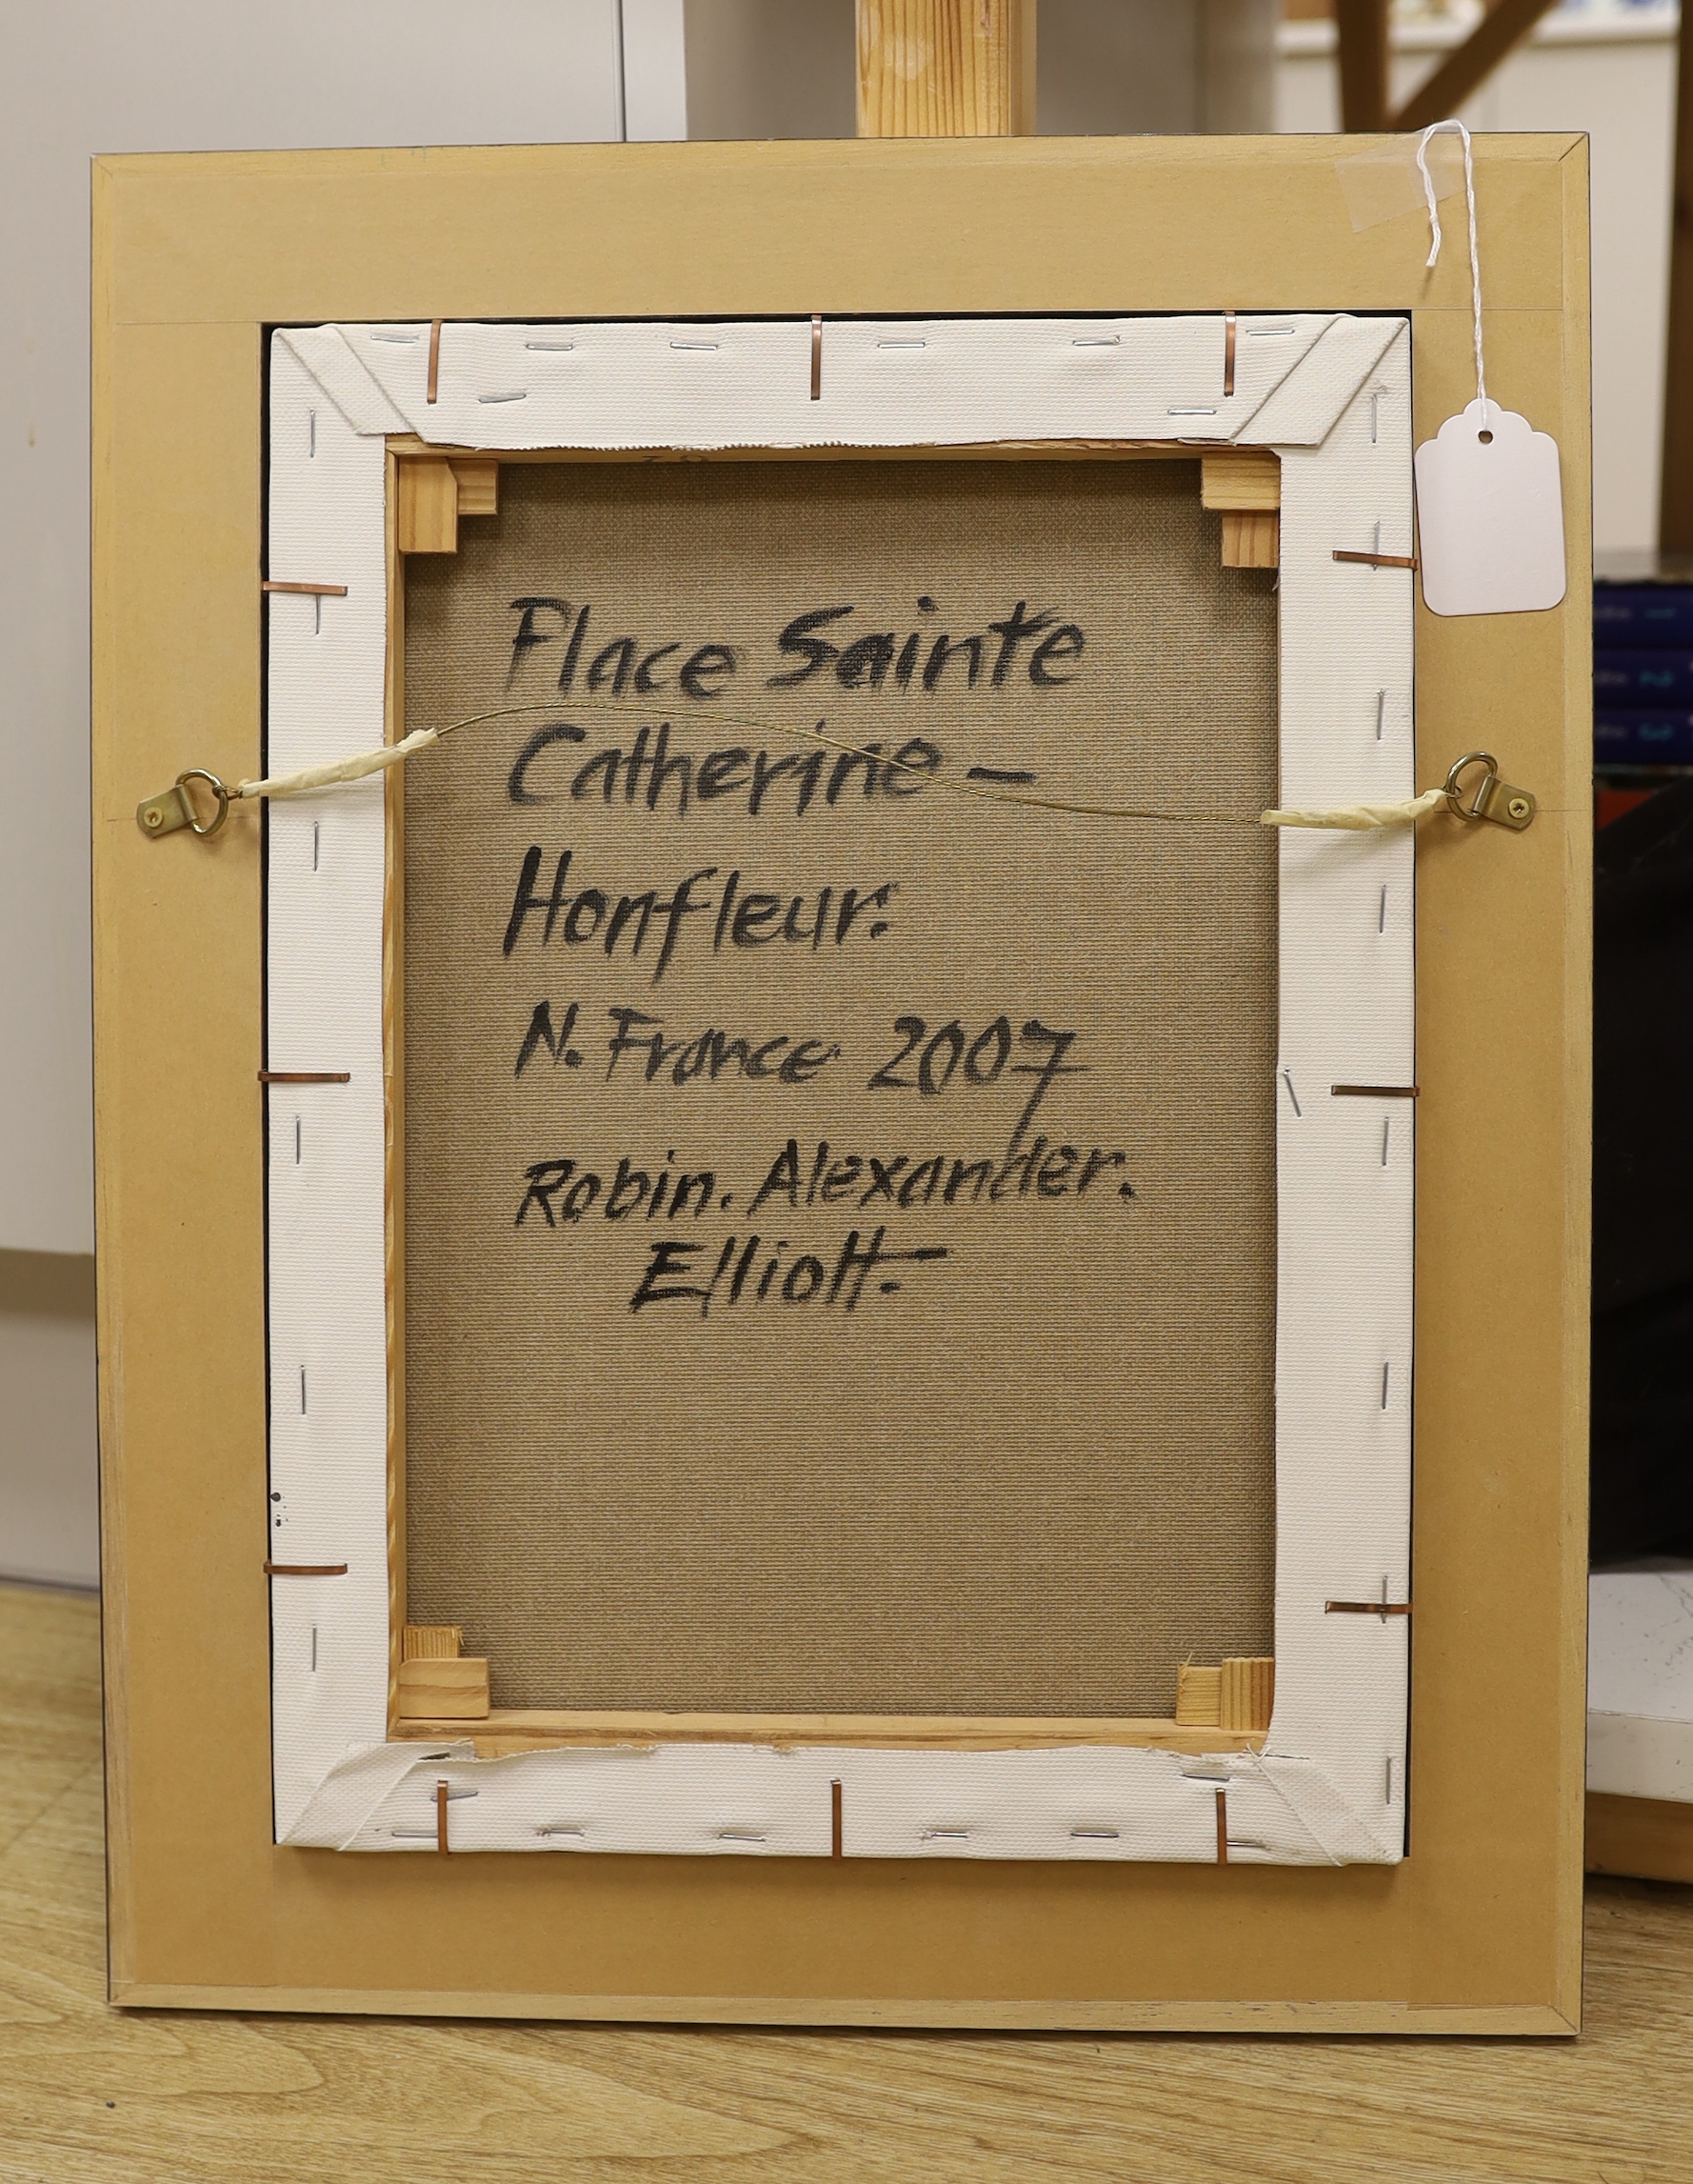 Place Sainte
Catherine –
Honfleur.
N. France 2007
Robin. Alexander.
Elliott.